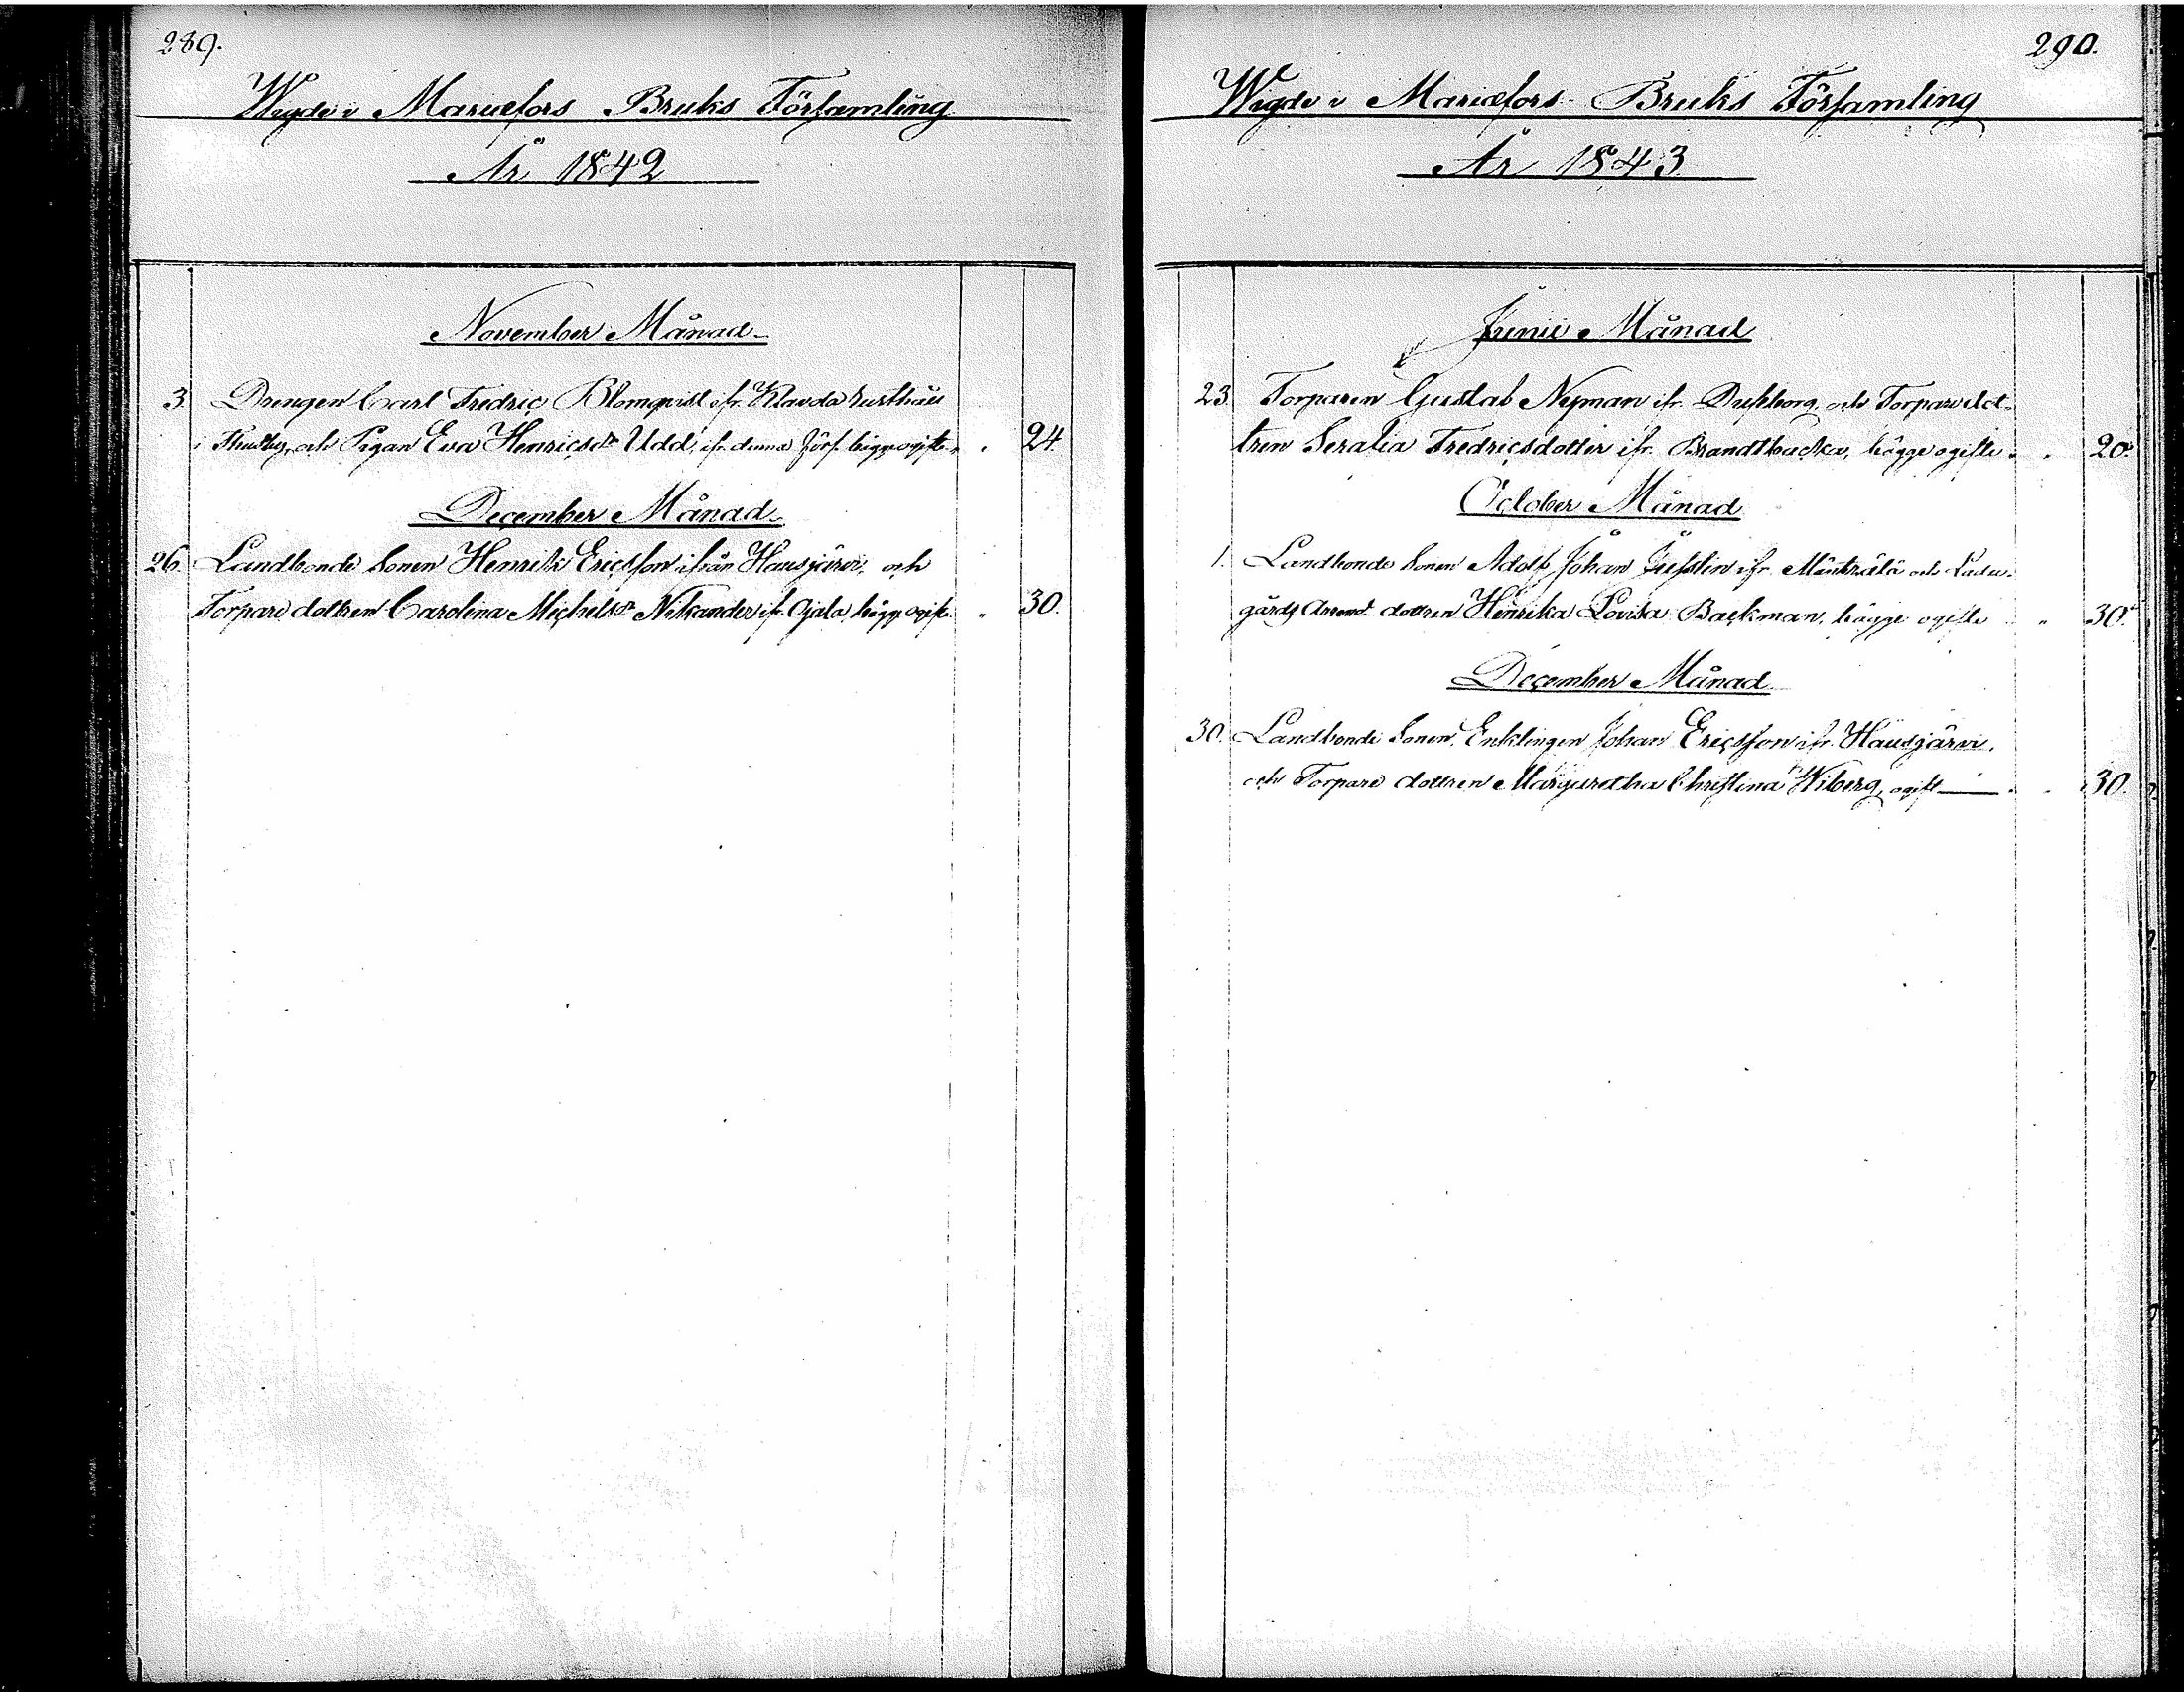 289.
Wigde i Mariæfors Bruks Församling
År 1842
November Månad
3. Drengen Carl Fredric Blomqvist ifr. Klavda Rusthåll
i och Pigan Eva Henricsdr Udd, ifr. denna Förs. bägge ogifte. 24.
December Månad
26. Landbonde Sonen Henrik Ericsson ifrån Hausjärvi, och
Torpare dottren Carolina Michelsdr Nikander ifr. Ojala, bägge ogifte. 30.
290.
Wigde i Mariæfors Bruks Församling
År 1843
Junii Månad
23. Torparen Gustaf Nyman ifr. och Torpare dot-
tren Serafia Fredricsdotter ifr. Brandtbacka, bägge ogifte. 20.
October Månad
1. Landbonde Sonen Adolf Johan Jusslin ifr. Mäntsälä och Ladu-
gårds Arrend. dottren Henrika Lovisa Backman, bägge ogifte 30.
December Månad
30. Landbonde Sonen, Enklingen Johan Ericsson ifr. Hausjärvi,
och Torpare dottren Margaretha Christina Wiberg, ogift 30.